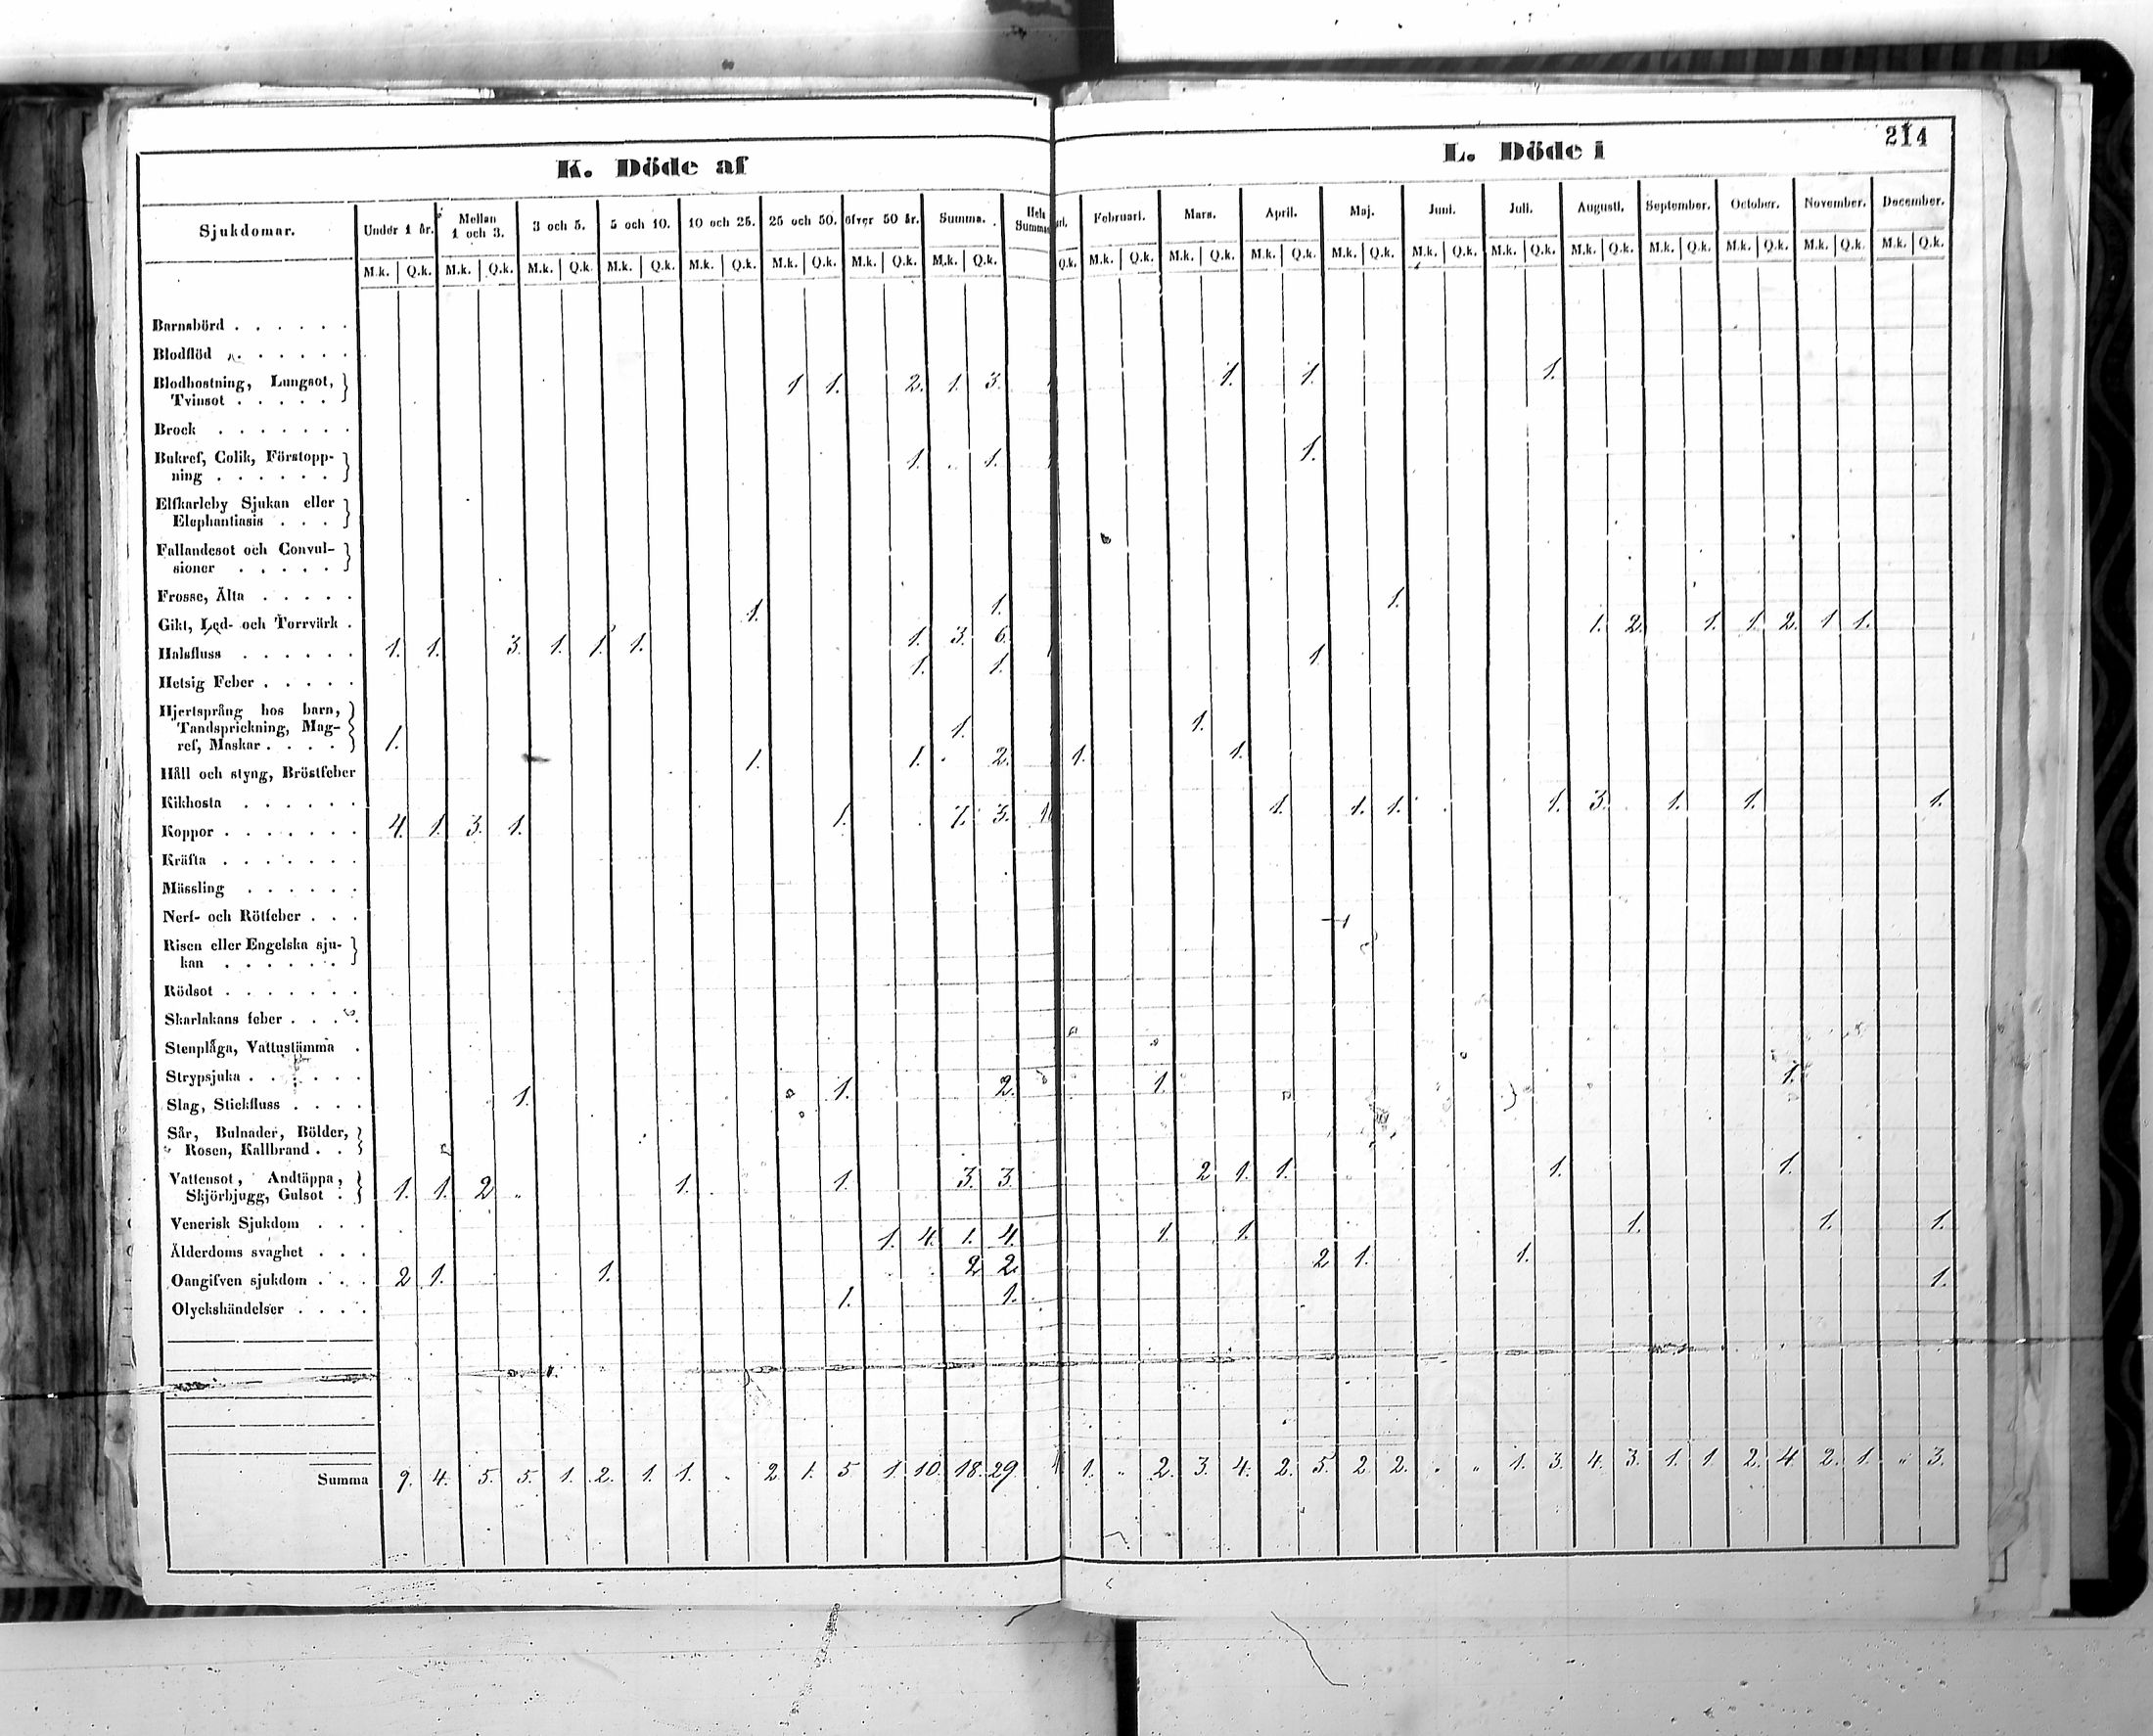 K. Döde af
L. Döde i
214
Sjukdomar. Under 1 år. Mellan 1 och 3. 3 och 5. 5 och 10. 10 och 25. 25 och 50. öfver 50 år. Summa. Hela Summan
Februari. Mars. April. Maj. Juni. Juli. Augusti. September. October. November. December.
M.k. Q.k. M.k. Q.k. M.k. Q.k. M.k. Q.k. M.k. Q.k. M.k. Q.k. M.k. Q.k. M.k. Q.k.
Q.k. M.k. Q.k. M.k. Q.k. M.k. Q.k. M.k. Q.k. M.k. Q.k. M.k. Q.k. M.k. Q.k. M.k. Q.k. M.k. Q.k. M.k. Q.k. M.k. Q.k.
Barnsbörd . . . . . .
Blodflöd . . . . . .
Blodhostning, Lungsot,
Tvinsot . . . . . 1 1. 2. 1. 3. 1. 1. 1.
Brock . . . . . . .
Bukref, Colik, Förstopp-
ning . . . . . . 1. 1. 1.
Elfkarleby Sjukan eller
Elephantiasis . . .
Fallandesot och Convul-
sioner . . . . .
Frosse, Älta . . . . .
Gikt, Led- och Torrvärk . 1. 1. 1.
Halsfluss . . . . . . 1. 1. 3. 1. 1. 1. 1. 3. 6. 1. 2. 1. 1. 2. 1 1.
Hetsig Feber . . . . . 1. 1. 1.
Hjertsprång hos barn,
Tandsprickning, Mag-
ref, Maskar . . . . 1. 1. 1.
Håll och styng, Bröstfeber 1. 1. 2. 1. 1.
Kikhosta . . . . . .
Koppor . . . . . . . 4. 1. 3. 1. 1. 7. 3. 1. 1. 1. 1. 3. 1. 1. 1.
Kräfta . . . . . . .
Mässling . . . . . .
Nerf- och Rötfeber . . .
Risen eller Engelska sju-
kan . . . . . .
Rödsot . . . . . . .
Skarlakans feber . . . .
Stenplåga, Vattustämma .
Strypsjuka . . . . . .
Slag, Stickfluss . . . . 1. 1. 2. 1. 1.
Sår, Bulnader, Bölder,
Rosen, Kallbrand . .
Vattensot, Andtäppa,
Skjörbjugg, Gulsot . 1. 1. 2 1. 1. 3. 3. 2 1. 1. 1. 1.
Venerisk Sjukdom . . .
Ålderdoms svaghet . . . 1. 4. 1. 4. 1. 1. 1. 1. 1.
Oangifven sjukdom . . . 2 1. 1. 2 2. 2 1. 1.
Olyckshändelser . . . . 1. 1. 1.
Summa 9. 4. 5. 5. 1. 2. 1. 1. 2. 1. 5 1. 10. 18. 29. 1. „ 2. 3. 4. 2. 5. 2 2. „ „ 1. 3. 4. 3. 1. 1. 2. 4. 2. 1. „ 3.